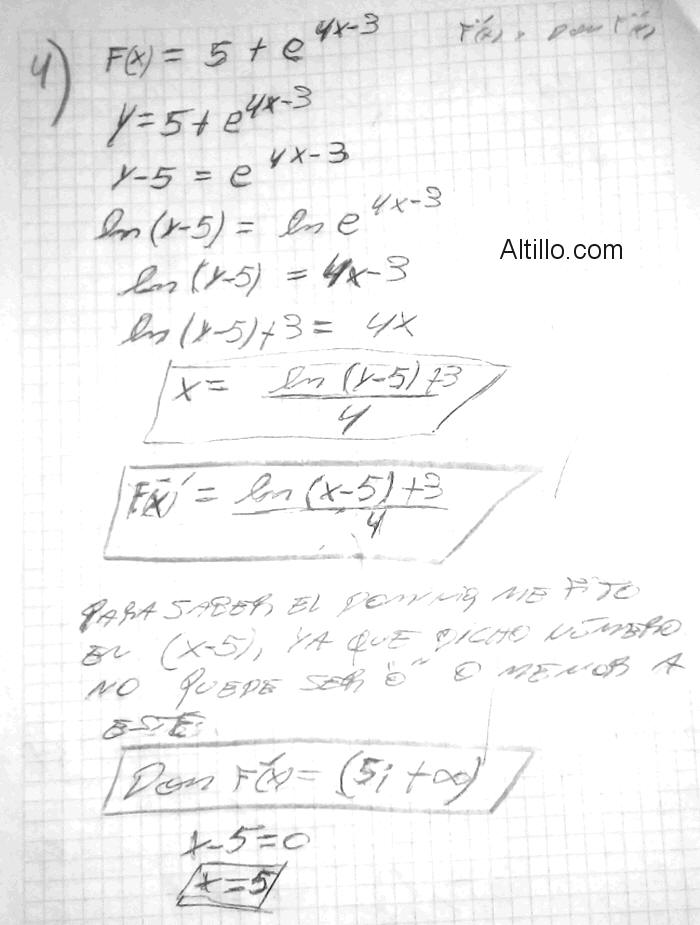 4) F(x) = 5 + e^{4x-3}
F^{-1}(x) , Dom F^{-1}(x)
y = 5 + e^{4x-3}
y-5 = e^{4x-3}
ln(y-5) = ln e^{4x-3}
Altillo.com
ln(y-5) = 4x-3
ln(y-5)+3 = 4x
x = \frac{ln(y-5)+3}{4}
F^{-1}(x) = \frac{ln(x-5)+3}{4}
PARA SABER EL DOMINIO ME FIJO
EN (x-5), YA QUE DICHO NÚMERO
NO PUEDE SER "0" O MENOR A
ESTE.
Dom F^{-1}(x) = (5; +∞)
x-5=0
x=5